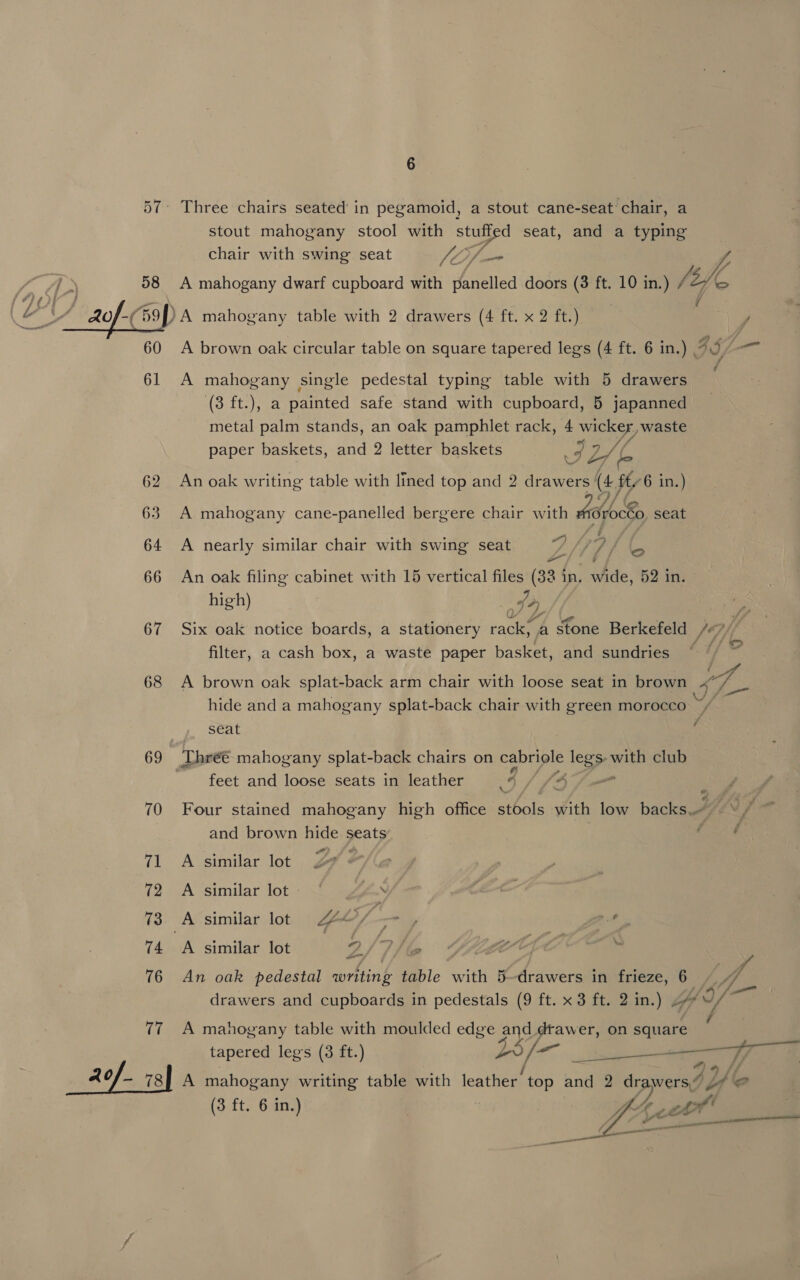 6
57 Three chairs seated in pegamoid, a stout cane-seat chair, a
stout mahogany stool with stuffed seat, and a typing
chair with swing seat 10/-
58 A mahogany dwarf cupboard with panelled doors (3 ft. 10 in.)
20/- (59 A mahogany table with 2 drawers (4 ft. x 2 ft.)
60 A brown oak circular table on square tapered legs (4 ft. 6 in.)
61 A mahogany single pedestal typing table with 5 drawers
(3 ft.), a painted safe stand with cupboard, 5 japanned
metal palm stands, an oak pamphlet rack, 4 wicker waste
paper baskets, and 2 letter baskets
62 An oak writing table with lined top and 2 drawers (4 ft. 6 in.)
63 A mahogany cane-panelled bergere chair with morocco seat
64 A nearly similar chair with swing seat
66 An oak filing cabinet with 15 vertical files (33 in. wide, 52 in.
high)
67 Six oak notice boards, a stationery rack, a stone Berkefeld
filter, a cash box, a waste paper basket, and sundries
68 A brown oak splat-back arm chair with loose seat in brown
hide and a mahogany splat-back chair with green morocco
seat
69 Three mahogany splat-back chairs on cabriole legs with club
feet and loose seats in leather
70 Four stained mahogany high office stools with low backs
and brown hide seats
71 A similar lot
72 A similar lot
73 A similar lot
74 A similar lot
76 An oak pedestal writing table with 5 drawers in frieze, 6
drawers and cupboards in pedestals (9 ft. x 3 ft. 2 in.)
77 A mahogany table with moulded edge and drawer, on square
tapered legs (3 ft.)
20/- 78] A mahogany writing table with leather top and 2 drawers
(3 ft. 6 in.)